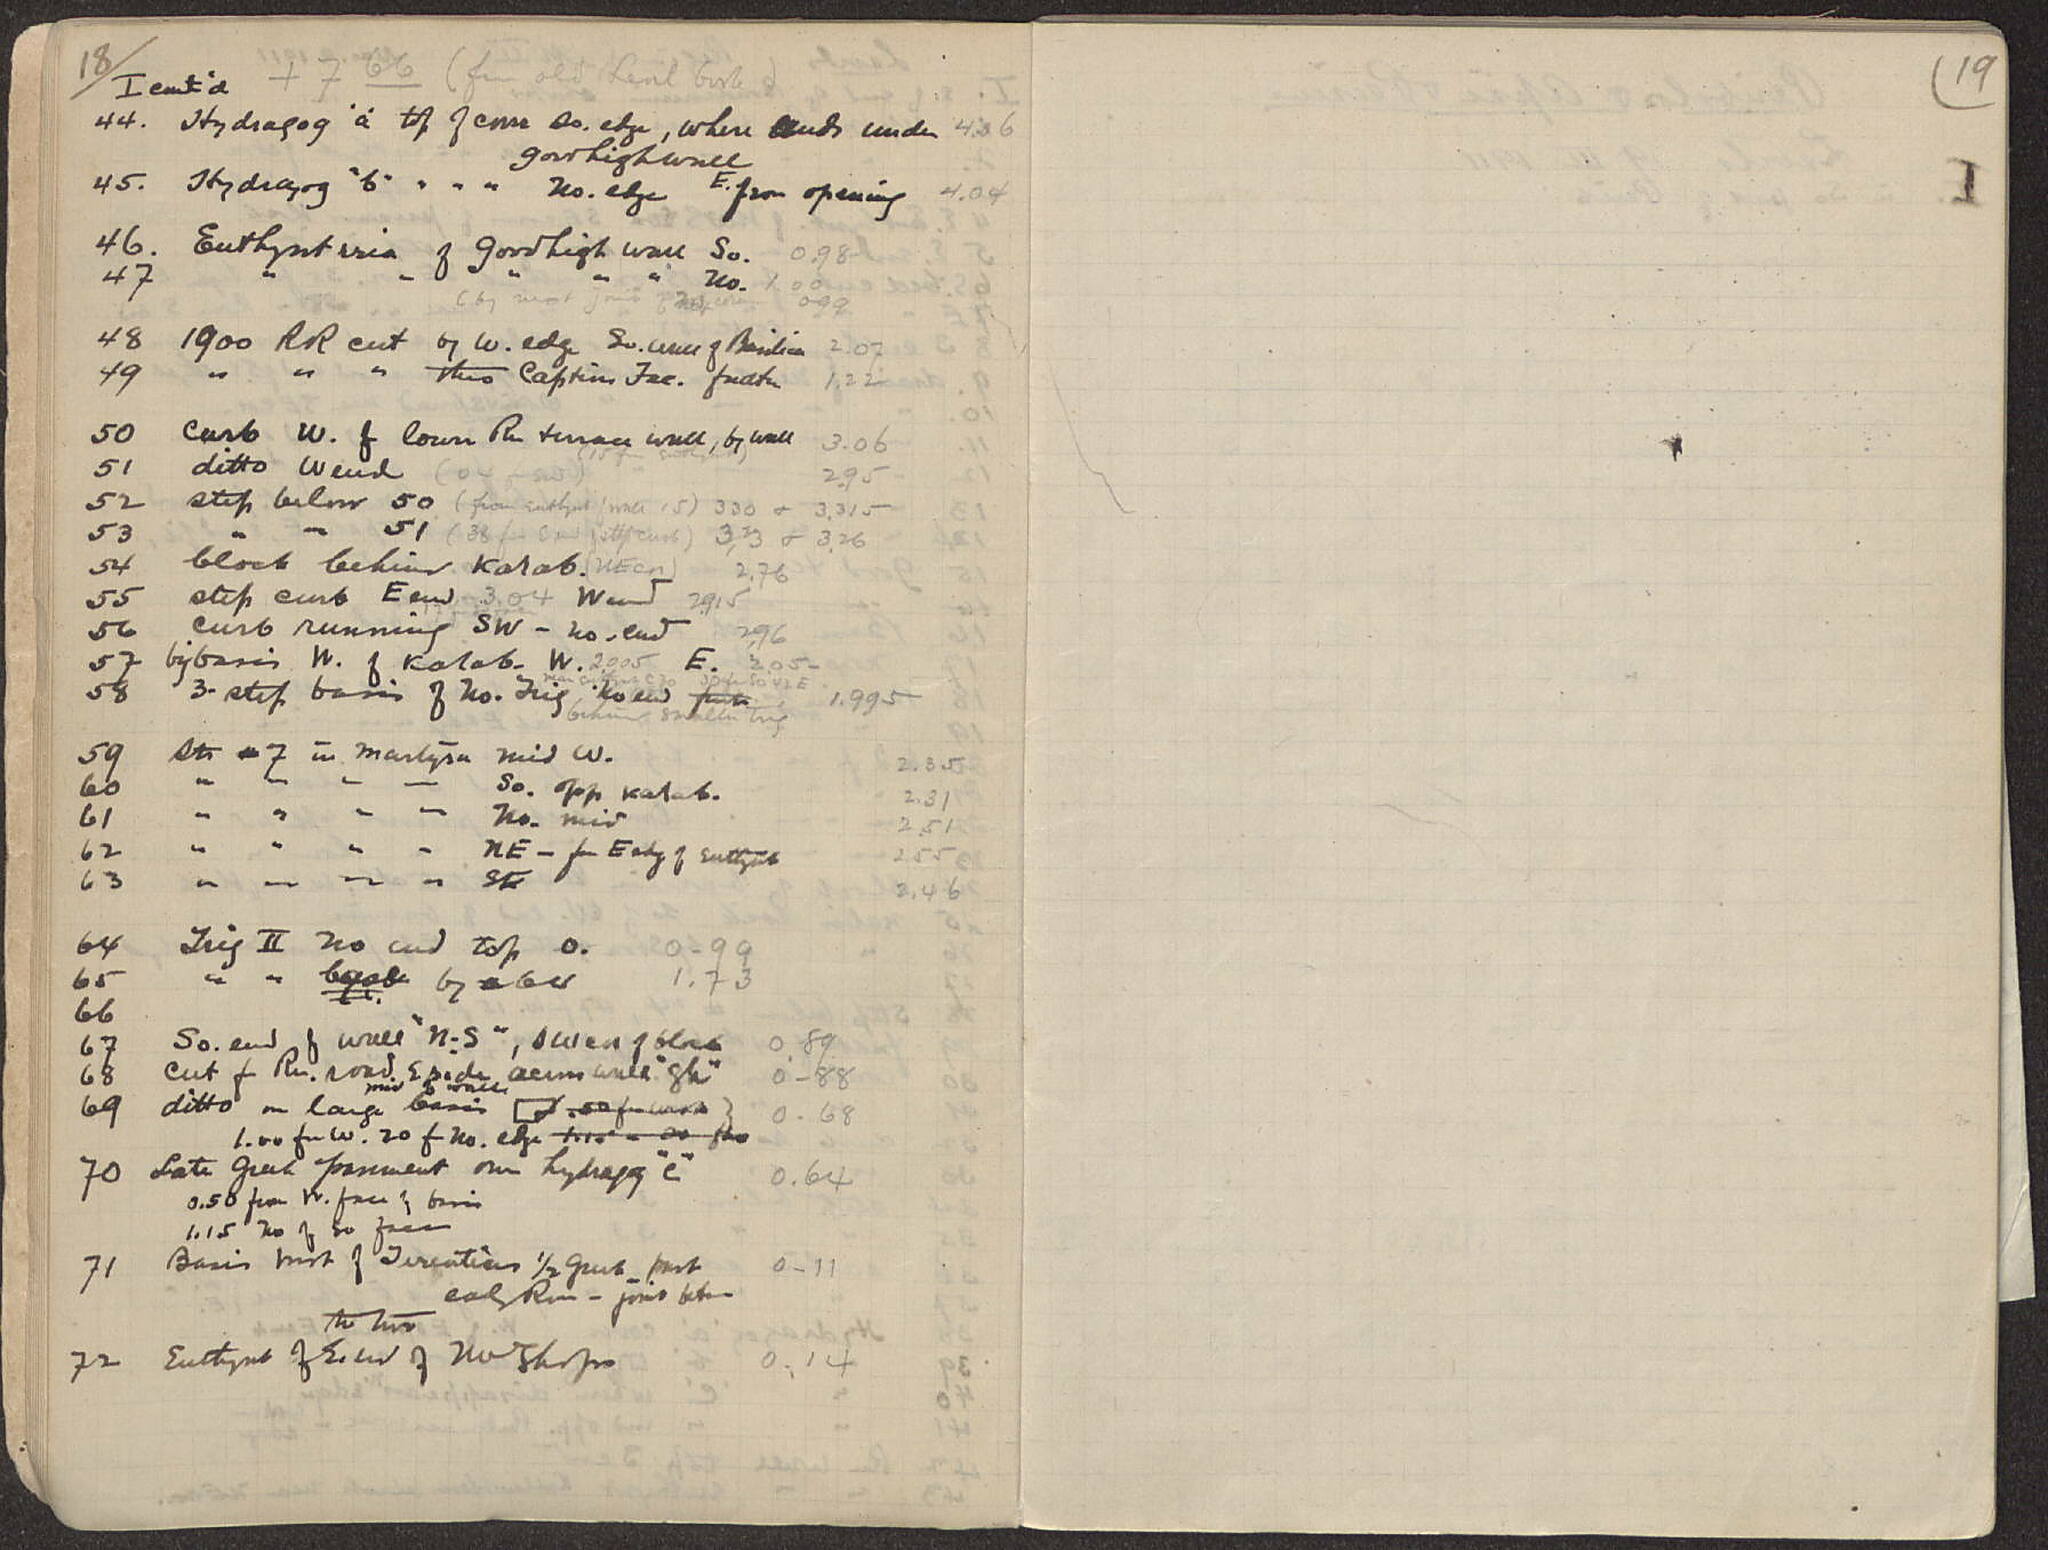 18/
I cont'd + 7 66 (fm old Level book)
44. Hydragog "a" top of cover So. edge, where ends under 4.06
good high wall
45. Hydragog "b" " " " No. edge E. from opening 4.04
46. Euthynteria of good high wall So. 0.98
47 " " " " " No. 1.00
(by next joint 0.99
48 1900 RR cut by W. edge So. wall of Basilica 2.07
49 " " " Captives Fac. 1.22
50 Curb W. of lower Rn terrace wall, by wall 3.06
51 ditto W end 2.95
52 step below 50 (from euthynt / wall .15) 3.30 & 3.315
53 " " 51 (38 fm E end step curb) 3.23 & 3.26
54 block behind Katab. (NE cor) 2.76
55 step curb E end 3.04 W end 2.915
56 curb running SW - No. end 2.96
57 big basis W. of Katab. W. 2.005 E. 2.05
58 3-step basis of No. Trig No end 1.995
behind smaller Trig
59 Str 7 in martyra mid W. 2.35
60 " " " " So. opp Katab. 2.31
61 " " " " No. mid 2.51
62 " " " " NE - fm E edg of euthynt 2.55
63 " " " " SE 2.46
64 Trig II No end top 0. 0-99
65 " " by 1.73
66
67 So. end of wall "N-S", SW cor of block 0.89
68 Cut fr Rn. road E side across wall "gh" 0-88
mid to wall
69 ditto on large basis 0.68
1.00 fm W. 20 f No. edge
70 Late Greek pavement over hydragog "c" 0.64
0.50 from W. face of basis
1.15 No of So face
71 Basis west of 1/2 Greek part 0-11
early Rom - joint betw
the two
72 Euthynt of E. end of NW Shops 0.14
(19
I